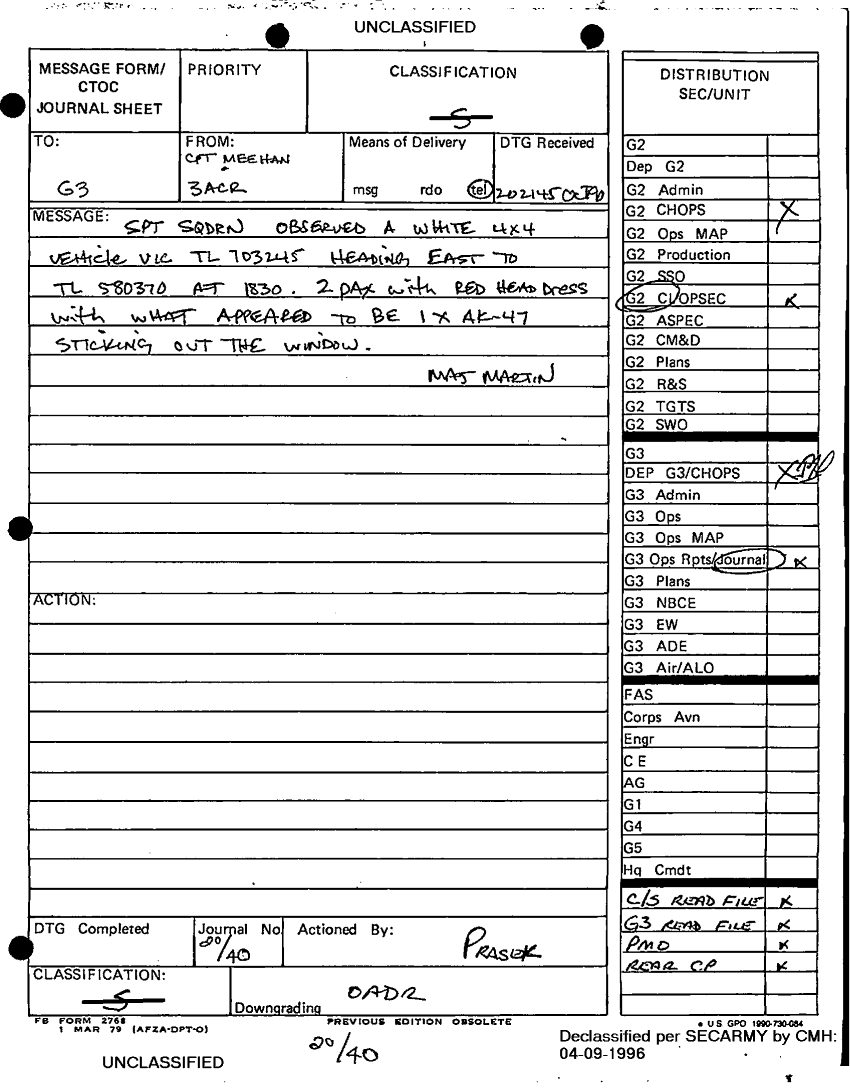 UNCLASSIFIED
MESSAGE FORM/
CTOC
JOURNAL SHEET
PRIORITY
CLASSIFICATION
S
TO:
G3
FROM:
CPT MEEHAN
3ACR
Means of Delivery
msg rdo tel
DTG Received
202145 OCT90
MESSAGE: SPT SQDRN OBSERVED A WHITE 4x4
VEHICLE VIC TL 703245 HEADING EAST TO
TL 580370 AT 1830. 2 PAX with RED HEAD DRESS
with WHAT APPEARED TO BE 1 X AK-47
STICKING OUT THE WINDOW.
MAJ MARTIN
ACTION:
DTG Completed
Journal No
20/40
Actioned By:
PRASEK
CLASSIFICATION:
S
Downgrading OADR
FB FORM 2768
1 MAR 79 (AFZA-DPT-O)
PREVIOUS EDITION OBSOLETE
20/40
DISTRIBUTION
SEC/UNIT
G2
Dep G2
G2 Admin
G2 CHOPS X
G2 Ops MAP
G2 Production
G2 SSO
G2 CI/OPSEC X
G2 ASPEC
G2 CM&D
G2 Plans
G2 R&S
G2 TGTS
G2 SWO
G3
DEP G3/CHOPS X
G3 Admin
G3 Ops
G3 Ops MAP
G3 Ops Rpts/Journal X
G3 Plans
G3 NBCE
G3 EW
G3 ADE
G3 Air/ALO
FAS
Corps Avn
Engr
C E
AG
G1
G4
G5
Hq Cmdt
C/S READ FILE X
G3 READ FILE X
PMO X
REAR CP X
U S GPO 1990-730-084
Declassified per SECARMY by CMH:
04-09-1996
UNCLASSIFIED